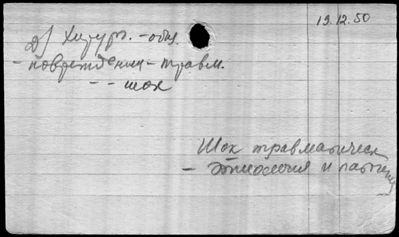 19.12.50
Д/ Хирург. - общ.
- повреждения - травм.
- - шок
Шок травматическ
- этиология и патоген